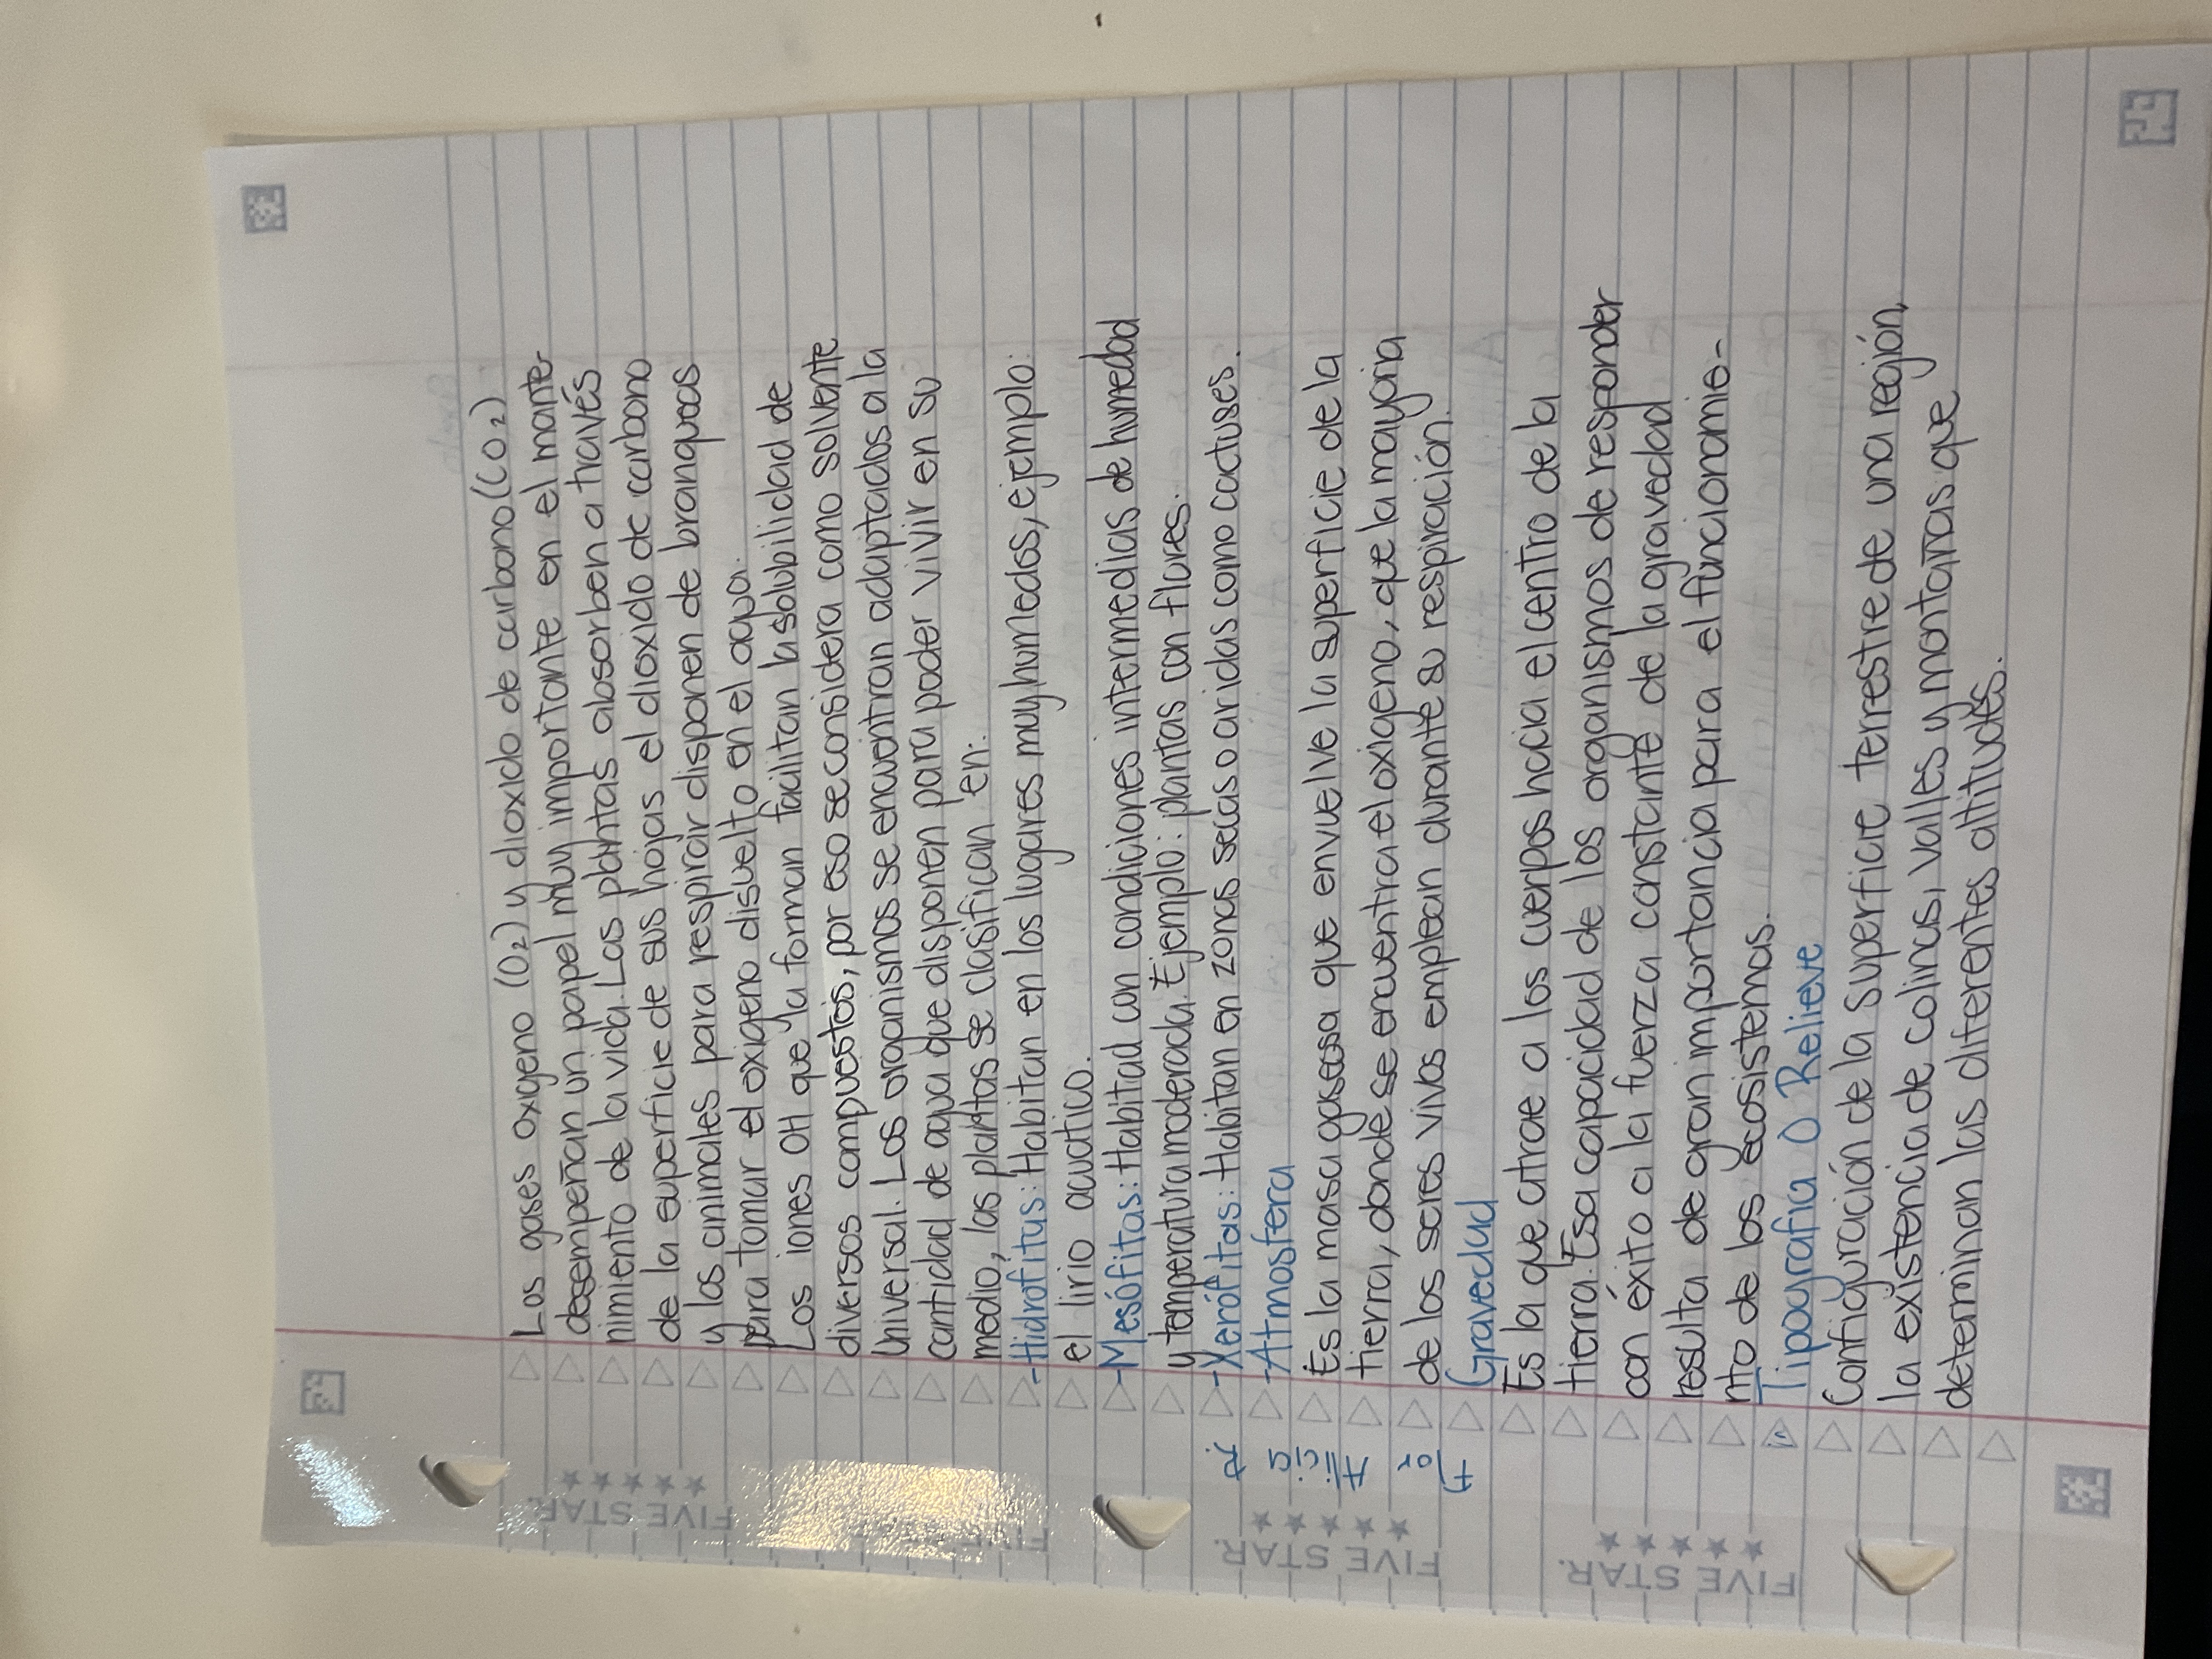 Los gases oxigeno (O₂) y dioxido de carbono (CO₂)
desempeñan un papel muy importante en el mante-
nimiento de la vida. Las plantas absorben a través
de la superficie de sus hojas el dioxido de carbono
y los animales para respirar disponen de branqueas
para tomar el oxigeno disuelto en el agua.
Los iones OH que la forman facilitan la solubilidad de
diversos compuestos, por eso se considera como solvente
Universal. Los organismos se encuentran adaptados a la
cantidad de agua que disponen para poder vivir en su
medio, las plantas se clasifican en:
-Hidrofitas: Habitan en los lugares muy humedos, ejemplo:
el lirio acuatico.
-Mesófitas: Habitad con condiciones intermedias de humedad
y temperatura moderada. Ejemplo: plantas con flores.
-Xerófitas: Habitan en zonas secas o aridas como cactuses.
-Atmosfera
Es la masa gaseosa que envuelve la superficie de la
tierra, donde se encuentra el oxigeno, que la mayoria
de los seres vivos emplean durante su respiración.
Gravedad
Es la que atrae a los cuerpos hacia el centro de la
tierra. Esa capacidad de los organismos de responder
con éxito a la fuerza constante de la gravedad
resulta de gran importancia para el funcionamie-
nto de los ecosistemas.
Tipografia O Relieve
Configuración de la superficie terrestre de una región,
la existencia de colinas, valles y montañas que
determinan las diferentes altitudes.
Flor
Alicia
R.
FIVE STAR.
FIVE STAR.
FIVE STAR.
FIVE STAR.